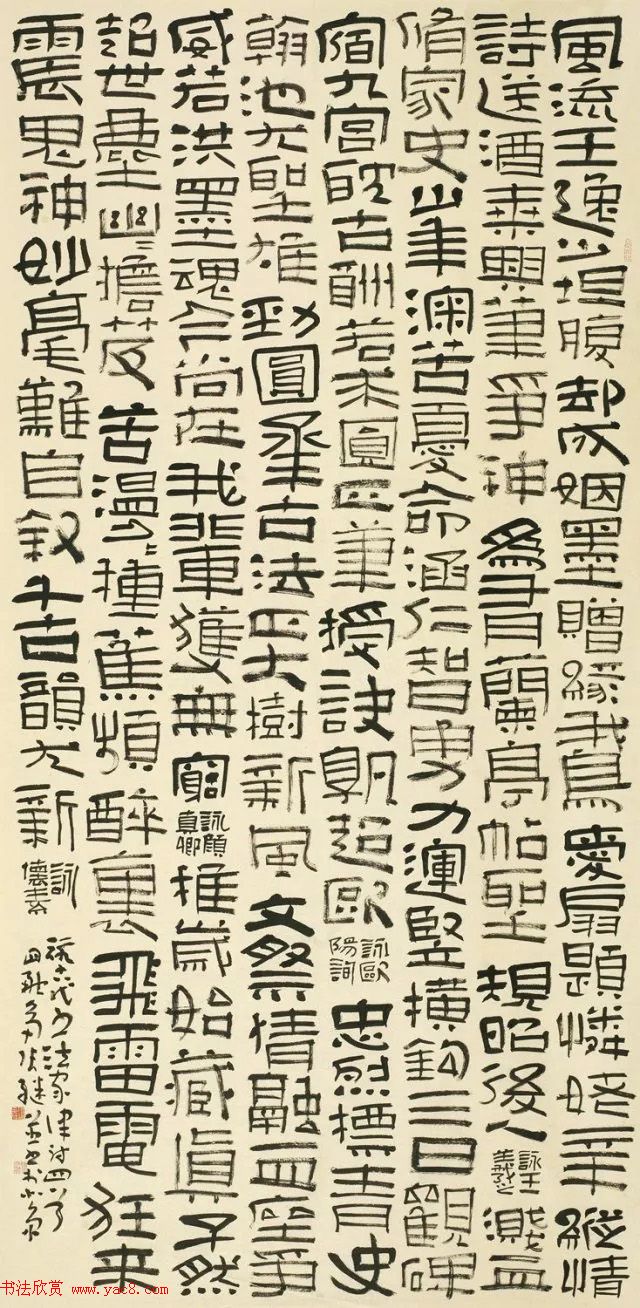 風流王逸少坦腹却成姻墨贈緣鵝愛扇題憐姥辛縱情
詩送酒乘興筆爭神為有蘭亭帖聖規昭後人詠王羲之濺血
脩家史少年瀾苦憂命涵仁智勇力運豎橫鉤三日觀碑
宿九宮睨古酬若求圓正筆授訣孰超歐詠歐陽詢忠烈標青史
翰池尤聖雄勁圓承古法正大樹新風文祭情融血座爭
威若洪墨魂今尚在我輩獲無窮詠顏真卿推歲始藏真孑然
超世塵幽幽擔笈苦漫漫種蕉頻醉裏飛雷電狂來
震鬼神妙毫難自叙千古韻尤新詠懷素
詠古代書法家律詩四首
书法欣赏
www.yac8.com